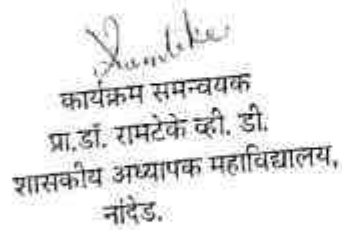 कार्यक्रम समन्वयक
प्रा.डॉ. रामटेके व्ही. डी.
शासकीय अध्यापक महाविद्यालय,
नांदेड.